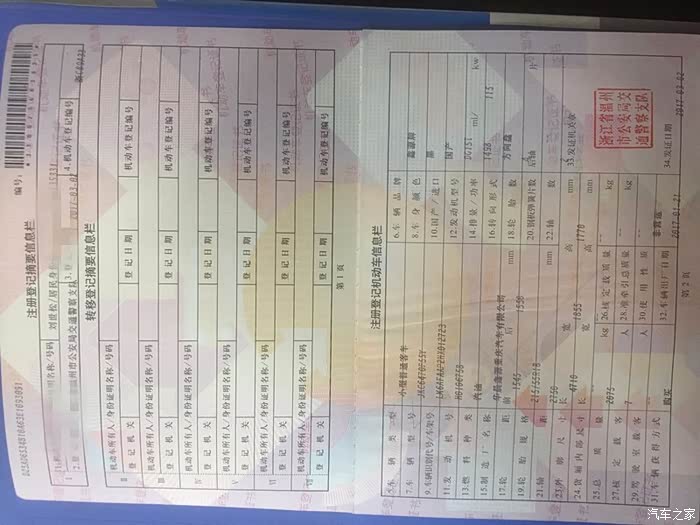 编号:
注册登记摘要信息栏
1.机动车所有人/身份证明名称/号码 刘世松/居民身份
2.登记机关 温州市公安局交通警察支队 3.登记日期 2017-03-02 4.机动车登记编号
转移登记摘要信息栏
Ⅱ 机动车所有人/身份证明名称/号码
登记机关 登记日期 机动车登记编号
Ⅲ 机动车所有人/身份证明名称/号码
登记机关 登记日期 机动车登记编号
Ⅳ 机动车所有人/身份证明名称/号码
登记机关 登记日期 机动车登记编号
Ⅴ 机动车所有人/身份证明名称/号码
登记机关 登记日期 机动车登记编号
Ⅵ 机动车所有人/身份证明名称/号码
登记机关 登记日期 机动车登记编号
Ⅶ 机动车所有人/身份证明名称/号码
登记机关 登记日期 机动车登记编号
第1页
注册登记机动车信息栏
5.车辆类型 小型普通客车 6.车辆品牌
7.车辆型号 8.车身颜色
9.车辆识别代号/车架号 10.国产/进口 国产
11.发动机号 12.发动机型号
13.燃料种类 汽油 14.排量/功率 ml/ 115 kw
15.制造厂名称 16.转向形式 方向盘
17.轮距 前 1565 后 1560 mm 18.轮胎数
19.轮胎规格 20.钢板弹簧片数 后轴 片
21.轴距 2750 mm 22.轴数
23.外廓尺寸 长 宽 1855 高 1770 mm 33.发证机关章
24.货厢内部尺寸 长 宽 高 mm
浙江省温州
市公安局交
通警察支队
25.总质量 2075 kg 26.核定载质量 kg
27.核定载客 7 人 28.准牵引总质量 kg
29.驾驶室载客 人 30.使用性质 非营运 34.发证日期 2017-03-02
31.车辆获得方式 购买 32.车辆出厂日期 2017-01-21
第2页
汽车之家